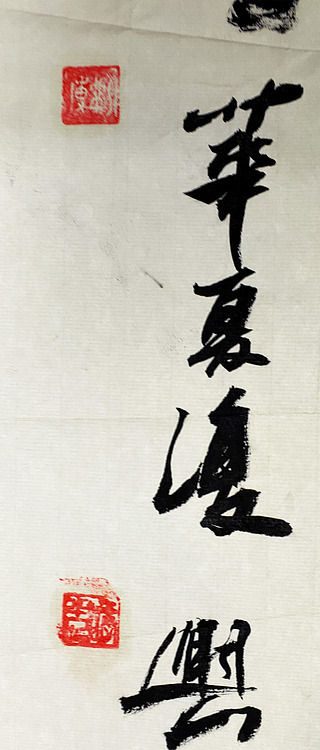 華夏復興